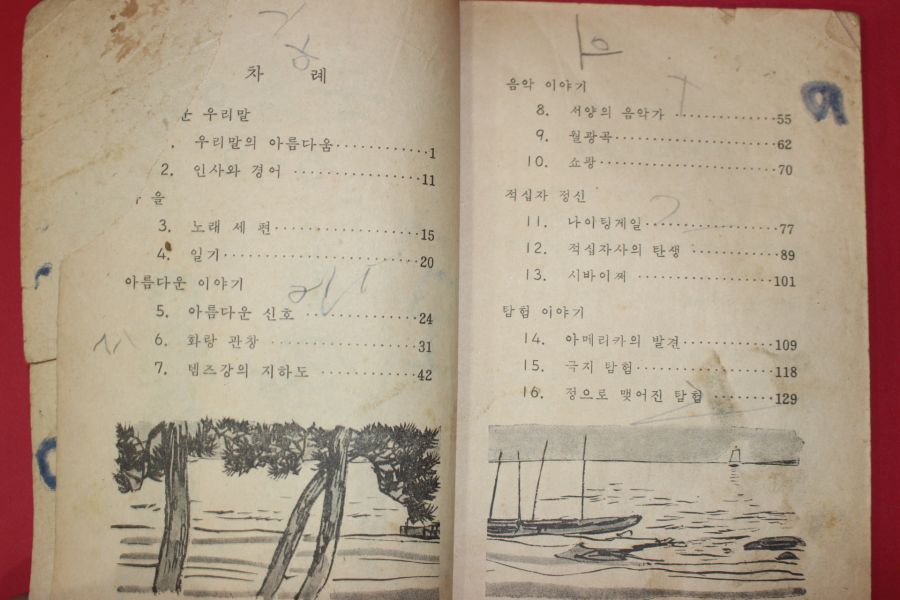 차 례
우리말
우리말의 아름다움············1
2. 인사와 경어 ················11
을
3. 노래 세 편··················15
4. 일기·························20
아름다운 이야기
5. 아름다운 신호 ··············24
6. 화랑 관창 ···················31
7. 템즈강의 지하도 ···········42
음악 이야기
8. 서양의 음악가 ··············55
9. 월광곡······················62
10. 쇼팡 ························70
적십자 정신
11. 나이팅게일·················77
12. 적십자사의 탄생 ··········89
13. 시바이쩌 ··················101
탐험 이야기
14. 아메리카의 발견···········109
15. 극지 탐험··················118
16. 정으로 맺어진 탐험 ········129